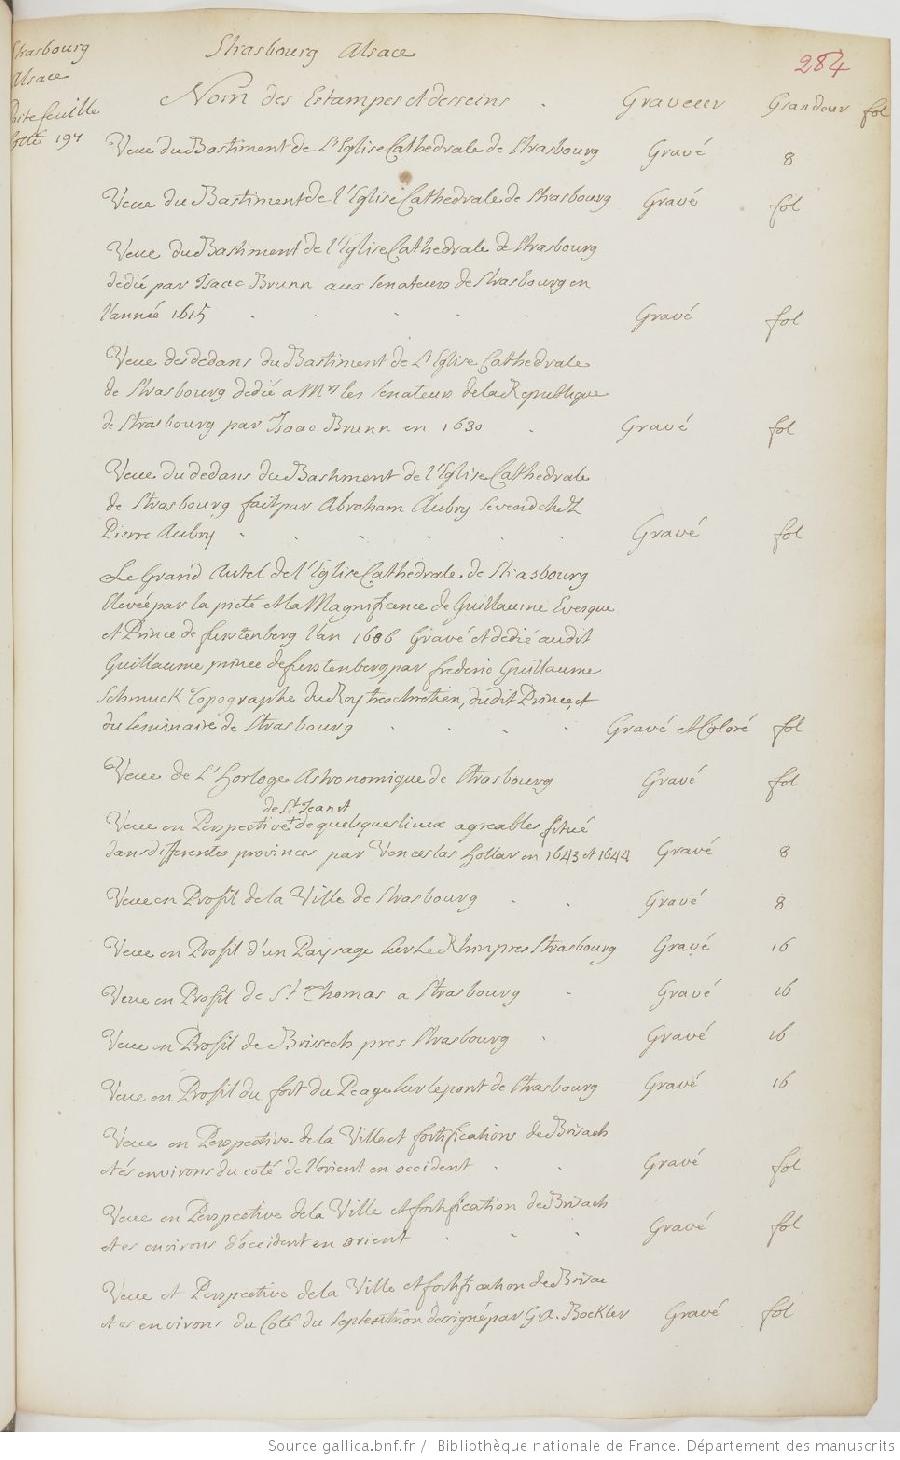 Strasbourg Alsace
284
Strasbourg
Alsace
Nom des Estampes et desseins . Graveur Grandeur fol
Portefeuille
Cotté 197
Veue du Bastiment de L'Eglise Cathedrale de Strasbourg Gravé 8
Veue du Bastiment de l'Eglise Cathedrale de Strasbourg Gravé fol
Veue du Bastiment de l'Eglise Cathedrale de Strasbourg
dedié par Isaac Brunn aux senateurs de Strasbourg en
l'année 1615 Gravé fol
Veue des dedans du Bastiment de L'Eglise Cathedrale
de Strasbourg dedié a Mrs les senateurs de la Republique
de Strasbourg par Isaac Brunn en 1630 Gravé fol
Veue du dedans du Bastiment de l'Eglise Cathedrale
de Strasbourg fait par Abraham Aubry se vend chez
Pierre Aubry Gravé fol
Le Grand Autel de l'Eglise Cathedrale de Strasbourg
Elevée par la pieté et la Magnificance de Guillaume Evesque
et Prince de furstenberg l'an 1686 Gravé et dedié audit
Guillaume prince de furstenberg par frederic Guillaume
Schmuck Topographe du Roy tres chretien, dudit Prince, et
du seminaire de Strasbourg Gravé et Coloré fol
Veue de L'Horloge Astronomique de Strasbourg Gravé fol
de St Jean et
Veue en Perspective de quelques lieux agreables situé
dans differentes provinces par Venceslas Hollar en 1643 et 1644 Gravé 8
Veue en Profil de la Ville de Strasbourg Gravé 8
Veue en Profil d'un Paysage sur Le Rhin pres Strasbourg Gravé 16
Veue en Profil de St Thomas a Strasbourg Gravé 16
Veue en Profil de Brisech pres Strasbourg Gravé 16
Veue en Profil du fort du Peage sur le pont de Strasbourg Gravé 16
Veue en Perspective de la Ville et fortifications de Brisach
et es environs du coté de l'orient en occident Gravé fol
Veue en Perspective de la Ville et fortification de Brisach
et es environs d'occident en orient Gravé fol
Veue et Perspective de la Ville et fortification de Brisac
et es environs du Coté du septentrion designé par G. A. Bockler Gravé fol
Source gallica.bnf.fr / Bibliothèque nationale de France. Département des manuscrits